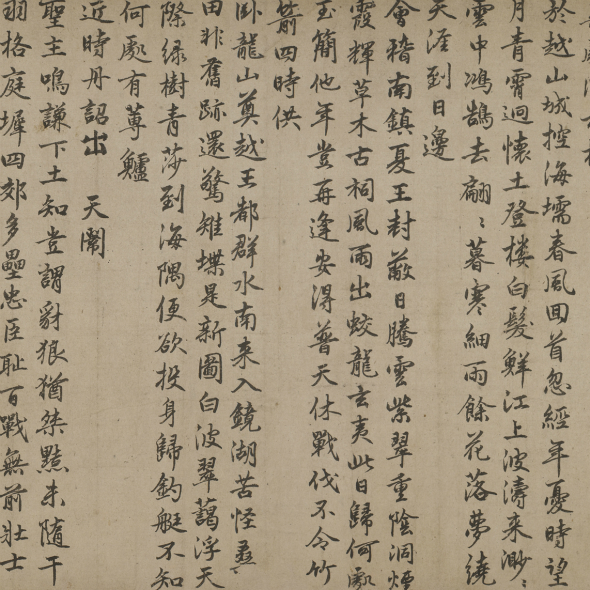 於越山城控海壖春風回首忽經年憂時望
月青霄迥懷土登樓白髮鮮江上波濤来渺〻
雲中鴻鵠去翩〻暮寒細雨餘花落夢繞
天涯到日邊
會稽南鎮夏王封蔽日騰雲紫翠重陰洞煙
霞輝草木古祠風雨出蛟龍玄夷此日歸何處
玉簡他年豈再逢安得普天休戰伐不令竹
箭四時供
卧龍山奠越王都群水南来入鏡湖苦怪
田非舊跡還驚雉堞是新圖白波翠藹浮天
際緑樹青莎到海隅便欲投身歸釣艇不知
何處有蓴鱸
近時丹詔出 天閽
聖主鳴謙下土知豈謂豺狼猶桀黠未隨干
羽格庭墀四郊多壘忠臣耻百戰無前壯士